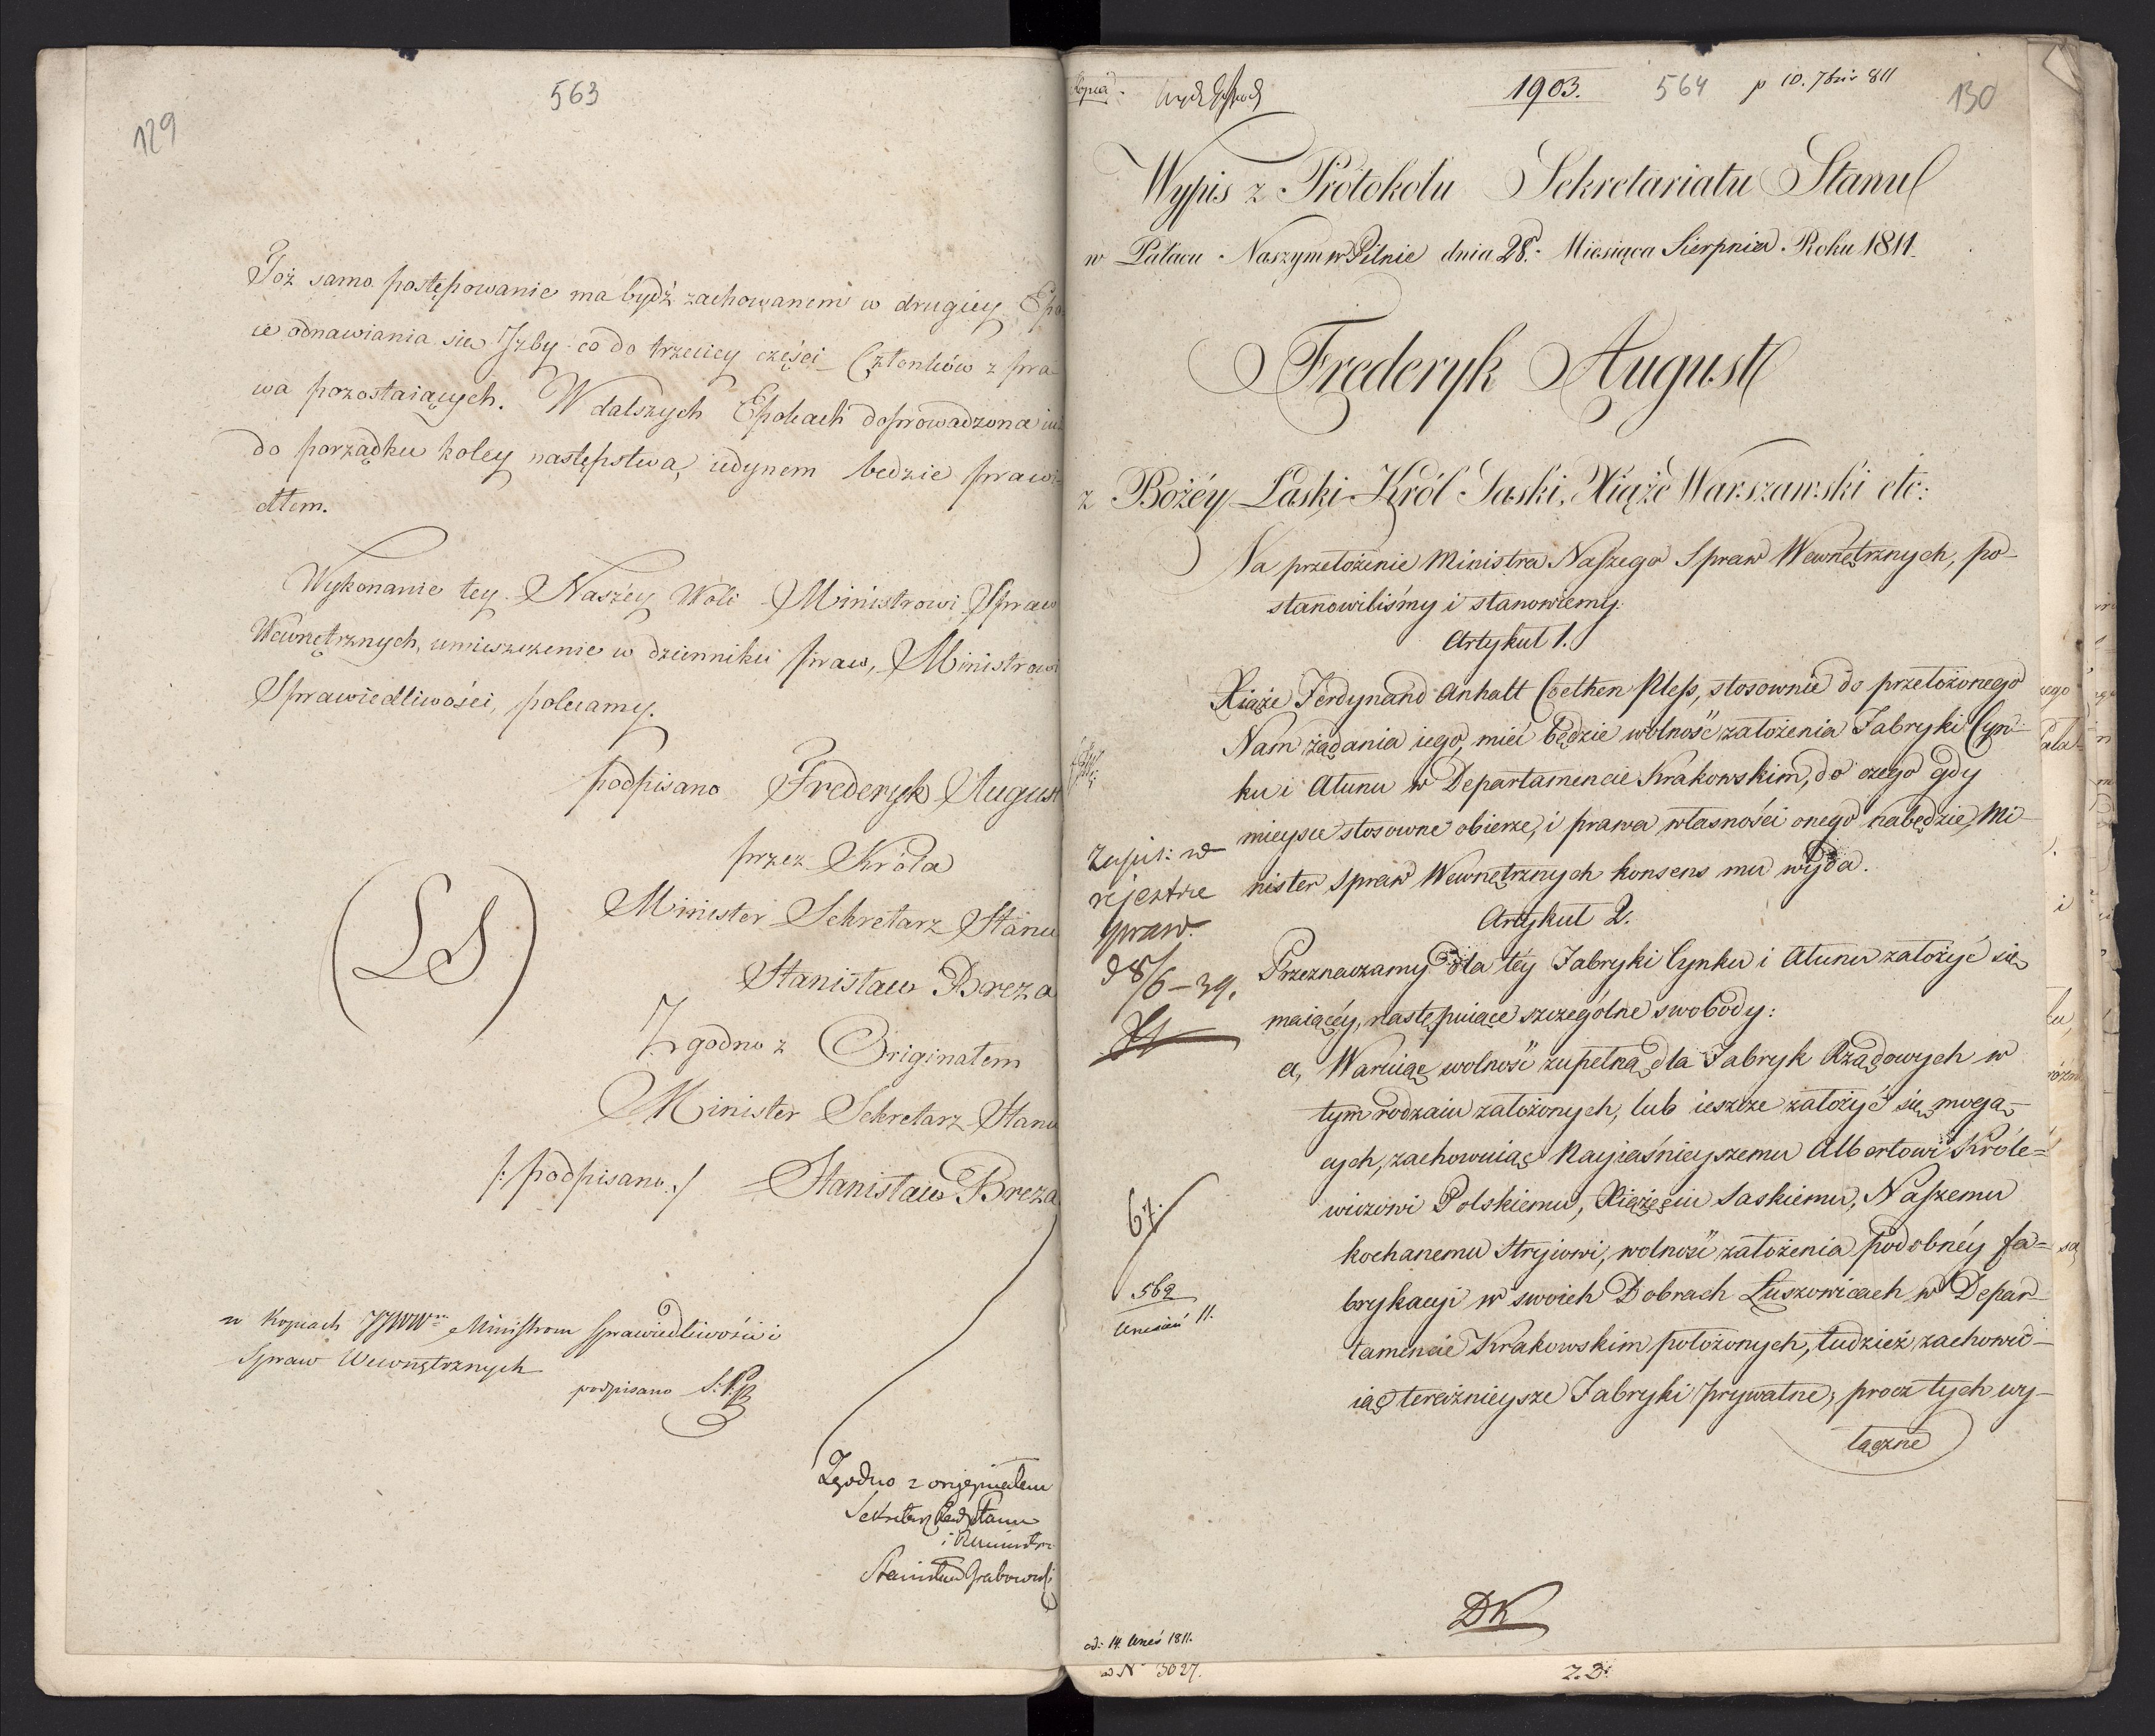 563
129
Toż samo postępowanie ma bydź zachowanem w drugiey Epo
ce odnawiania się Izby co do trzeciey części Członków z pra-
wa pozostaiących. W dalszych Epokach doprowadzona iuż
do porządku koley następstwa, iedynem będzie prawi-
dłem.
Wykonanie tey Naszéy Woli Ministrowi Spraw
Wewnętrznych, umieszczenie w dzienniku praw, Ministrowi
Sprawiedliwości, polecamy.
podpisano Frederyk August
przez Króla
Minister Sekretarz Stanu
(LS)
Stanisław Breza
Zgodno z Originałem
Minister Sekretarz Stanu
/: podpisano :/ Stanisław Breza
w Kopiach JJWWm Ministrom Sprawiedliwości i
Spraw Wewnętrznych
podpisano S. B.
Zgodno z oryginałem
Sekretarz Rady Stanu
i Ministrów
Stanisław Grabowski
Kopia.
1903.
564
p 10. 7bris 811
130
Wypis z Protokołu Sekretariatu Stanu
w Pałacu Naszym w Pilnie dnia 28. Miesiąca Sierpnia Roku 1811.
Frederyk August
z Bożéy Łaski Król Saski, Xiąże Warszawski etc:
Na przełożenie Ministra Naszego Spraw Wewnętrznych, po-
stanowiliśmy i stanowiemy.
Artykuł 1.
Xiąże Ferdynand Anhalt Coethen Pless, stosownie do przełożonego
Nam żądania iego, mieć będzie wolność założenia Fabryki Cyn-
ku i Ałunu w Departamencie Krakowskim, do czego gdy
mieysce stosowne obierze, i prawa własności onego nabędzie, Mi-
nister Spraw Wewnętrznych konsens mu wyda.
Zapis: w
rejestrze
spraw.
d 8/6 – 39.
Artykuł 2.
Przeznaczamy dla téy Fabryki Cynku i Ałunu założyć się
maiącéy, następuiące szczególne swobody:
a, Waruiąc wolność zupełną dla Fabryk Rządowych w
tym rodzaiu założonych, lub ieszcze założyć się mogą-
cych, zachowuiąc Nayiaśnieyszemu Albertowi Króle=
wiczowi Polskiemu, Xiążęciu Saskiemu, Naszemu
kochanemu Stryiowi, wolność założenia podobnéy fa=
brykacyi w swoich Dobrach Łuszowicach w Depar-
tamencie Krakowskim położonych, tudzież zachowu-
iąc terażnieysze Fabryki prywatne, procz tych wy-
łączne
67.
562
Wrzesień 11.
DK
od: 14. Wrześ 1811.
ad No 3027.
Z. D.